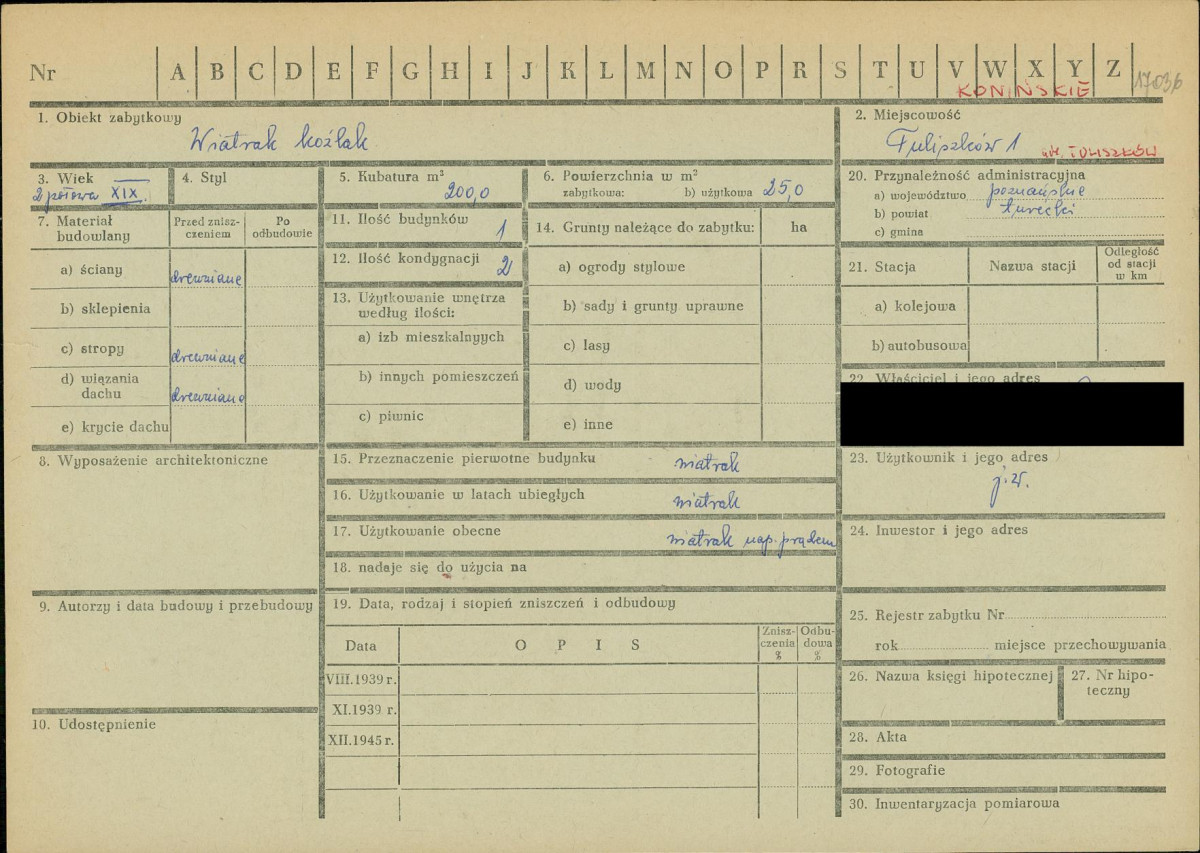 Nr A B C D E F G H I J K L M N O P R S T U V W X Y Z
KONIŃSKIE
17036
1. Obiekt zabytkowy
Wiatrak koźlak
2. Miejscowość
Tuliszków 1
TULISZKÓW
3. Wiek
2 połowa XIX.
4. Styl
5. Kubatura m³
200,0
6. Powierzchnia w m²
zabytkowa: b) użytkowa 25,0
20. Przynależność administracyjna
a) województwo poznańskie
b) powiat turecki
c) gmina
7. Materiał budowlany
Przed zniszczeniem
Po odbudowie
a) ściany drewniane
b) sklepienia
c) stropy drewniane
d) wiązania dachu drewniane
e) krycie dachu
11. Ilość budynków 1
12. Ilość kondygnacji 2
13. Użytkowanie wnętrza
według ilości:
a) izb mieszkalnyych
b) innych pomieszczeń
c) piwnic
14. Grunty należące do zabytku: ha
a) ogrody stylowe
b) sady i grunty uprawne
c) lasy
d) wody
e) inne
21. Stacja
Nazwa stacji
Odległość
od stacji
w km
a) kolejowa
b) autobusowa
22. Właściciel i jego adres
8. Wyposażenie architektoniczne
15. Przeznaczenie pierwotne budynku wiatrak
16. Użytkowanie w latach ubiegłych wiatrak
17. Użytkowanie obecne wiatrak nap. prądem
18. nadaje się do użycia na
23. Użytkownik i jego adres
j.w.
24. Inwestor i jego adres
9. Autorzy i data budowy i przebudowy
10. Udostępnienie
19. Data, rodzaj i stopień zniszczeń i odbudowy
Data
OPIS
Znisz-
czenia
%
Odbu-
dowa
%
VIII.1939 r.
XI.1939 r.
XII.1945 r.
25. Rejestr zabytku Nr
rok miejsce przechowywania
26. Nazwa księgi hipotecznej
27. Nr hipo-
teczny
28. Akta
29. Fotografie
30. Inwentaryzacja pomiarowa